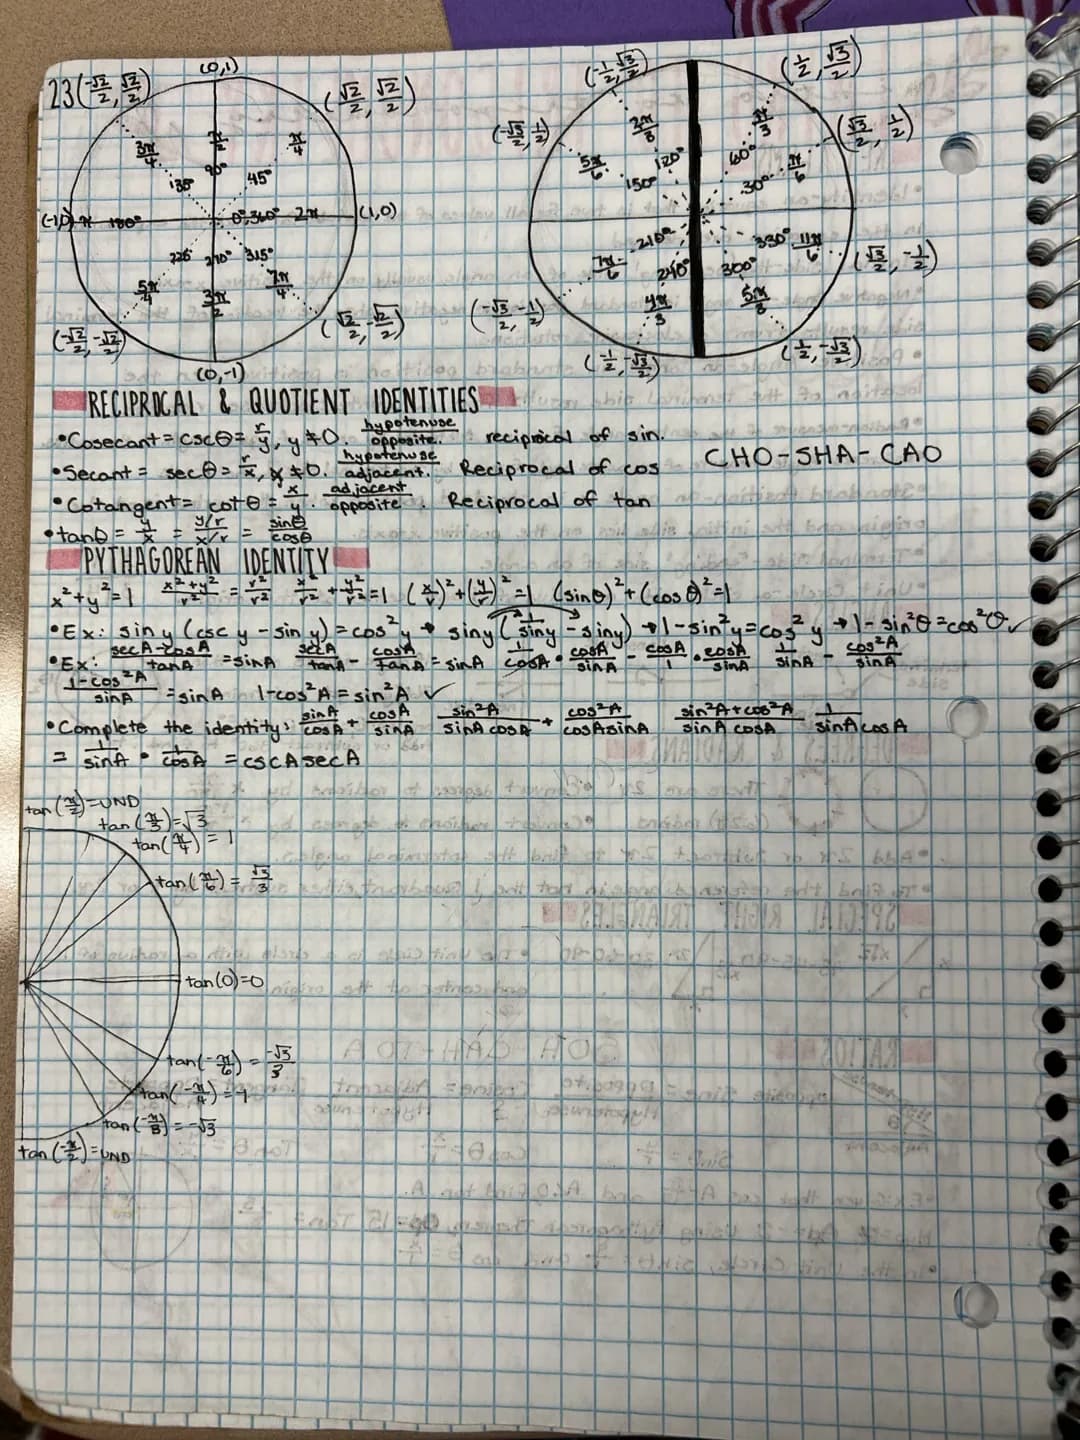 23
(-√2/2, √2/2)
(0,1)
(√2/2, √2/2)
3π/4
π/2
π/4
135°
90°
45°
(-1,0) π 180°
0°,360° 2π (1,0)
225°
270°
315°
5π/4
3π/2
7π/4
(-√2/2, -√2/2)
(0,-1)
(√2/2, -√2/2)
(-1/2, √3/2)
(1/2, √3/2)
(-√3/2, 1/2)
2π/3
π/3
(√3/2, 1/2)
5π/6
120°
60°
π/6
150°
30°
210°
330°
11π/6
(√3/2, -1/2)
7π/6
240°
300°
(-√3/2, -1/2)
4π/3
5π/3
(-1/2, -√3/2)
(1/2, -√3/2)
RECIPROCAL & QUOTIENT IDENTITIES
•Cosecant = cscθ = r/y, y≠0. hypotenuse/opposite. reciprocal of sin.
•Secant = secθ = r/x, x≠0. hypotenuse/adjacent. Reciprocal of cos
CHO-SHA-CAO
•Cotangent = cotθ = x/y. adjacent/opposite. Reciprocal of tan
•tanθ = y/x = y/r / x/r = sinθ/cosθ
PYTHAGOREAN IDENTITY
x²+y²=1 x²+y²/r² = r²/r² x²/r² + y²/r² = 1 (x/r)²+(y/r)²=1 (sinθ)²+(cosθ)²=1
•Ex: sin y (csc y - sin y) = cos²y → sin y (1/sin y - sin y) → 1-sin²y = cos²y → 1-sin²θ = cos²θ ✓
•Ex: secA-cosA/tanA = sinA secA/tanA - cosA/tanA = sinA 1/cosA • cosA/sinA - cosA/1 • cosA/sinA 1/sinA - cos²A/sinA
1-cos²A/sinA = sinA 1-cos²A = sin²A ✓
•Complete the identity: sinA/cosA + cosA/sinA sin²A/sinA cosA + cos²A/cosA sinA sin²A+cos²A/sinA cosA 1/sinA cosA
= 1/sinA • 1/cosA = cscA secA
tan(π/2)=UND
tan(π/3)=√3
tan(π/4)=1
tan(π/6)=√3/3
tan(0)=0
tan(-π/6)=-√3/3
tan(-π/4)=-1
tan(-π/3)=-√3
tan(-π/2)=UND